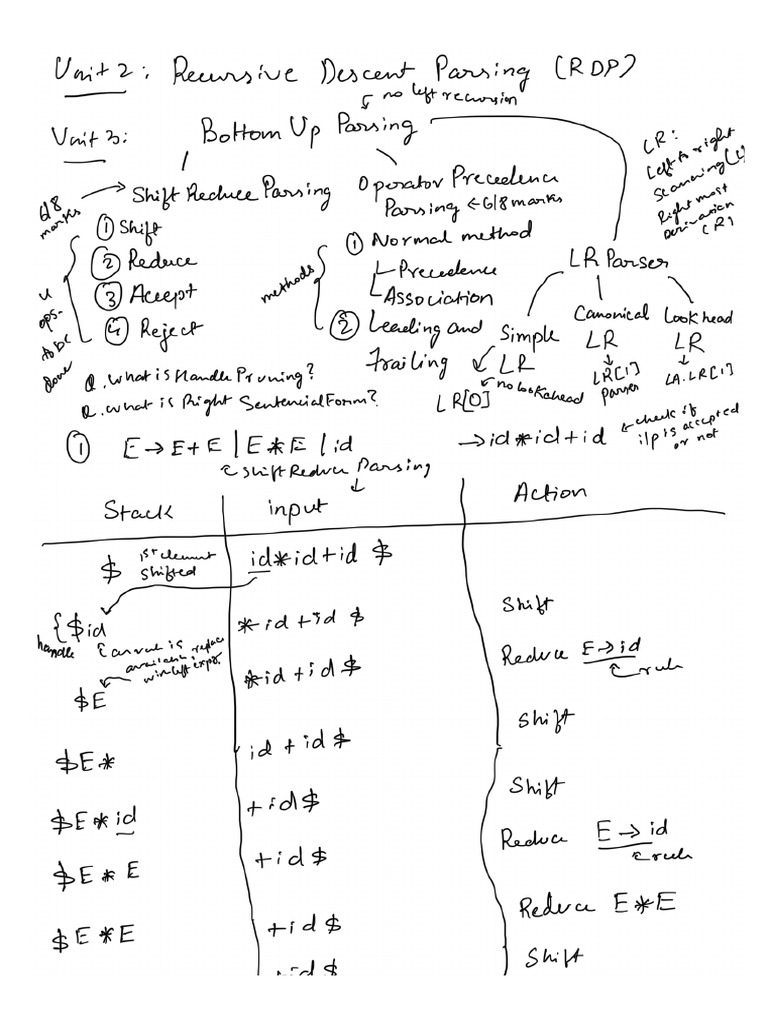 Unit 2: Recursive Descent Parsing (RDP)
no left recursion
Unit 3: Bottom Up Parsing
LR:
Left to right
Scanning (L)
Right most
Derivation
(R)
6/8 marks
Shift Reduce Parsing
Operator Precedence
Parsing ← 6/8 marks
LR Parser
4 ops- to be done
① Shift
② Reduce
③ Accept
④ Reject
methods
① Normal method
Precedence
Association
② Leading and
Trailing
Simple
LR
LR[0]
no lookahead
Canonical
LR
LR[1]
Parser
Look head
LR
LA.LR[1]
Q. What is Handle Pruning?
Q. What is Right Sentencial Form?
① E → E + E | E * E | id
→ id * id + id
check if
i/p is accepted
or not
Shift Reduce Parsing
Stack input Action
$ 1st element
shifted
id*id+id $
Shift
{$id *id +id $
handle
available replace
with left expr.
Reduce E → id
rule
$E *id +id $
Shift
$E* id + id $
Shift
$E*id +id $
Reduce E → id
rule
$E * E +id $
Reduce E*E
$E*E +id $
Shift
+id $